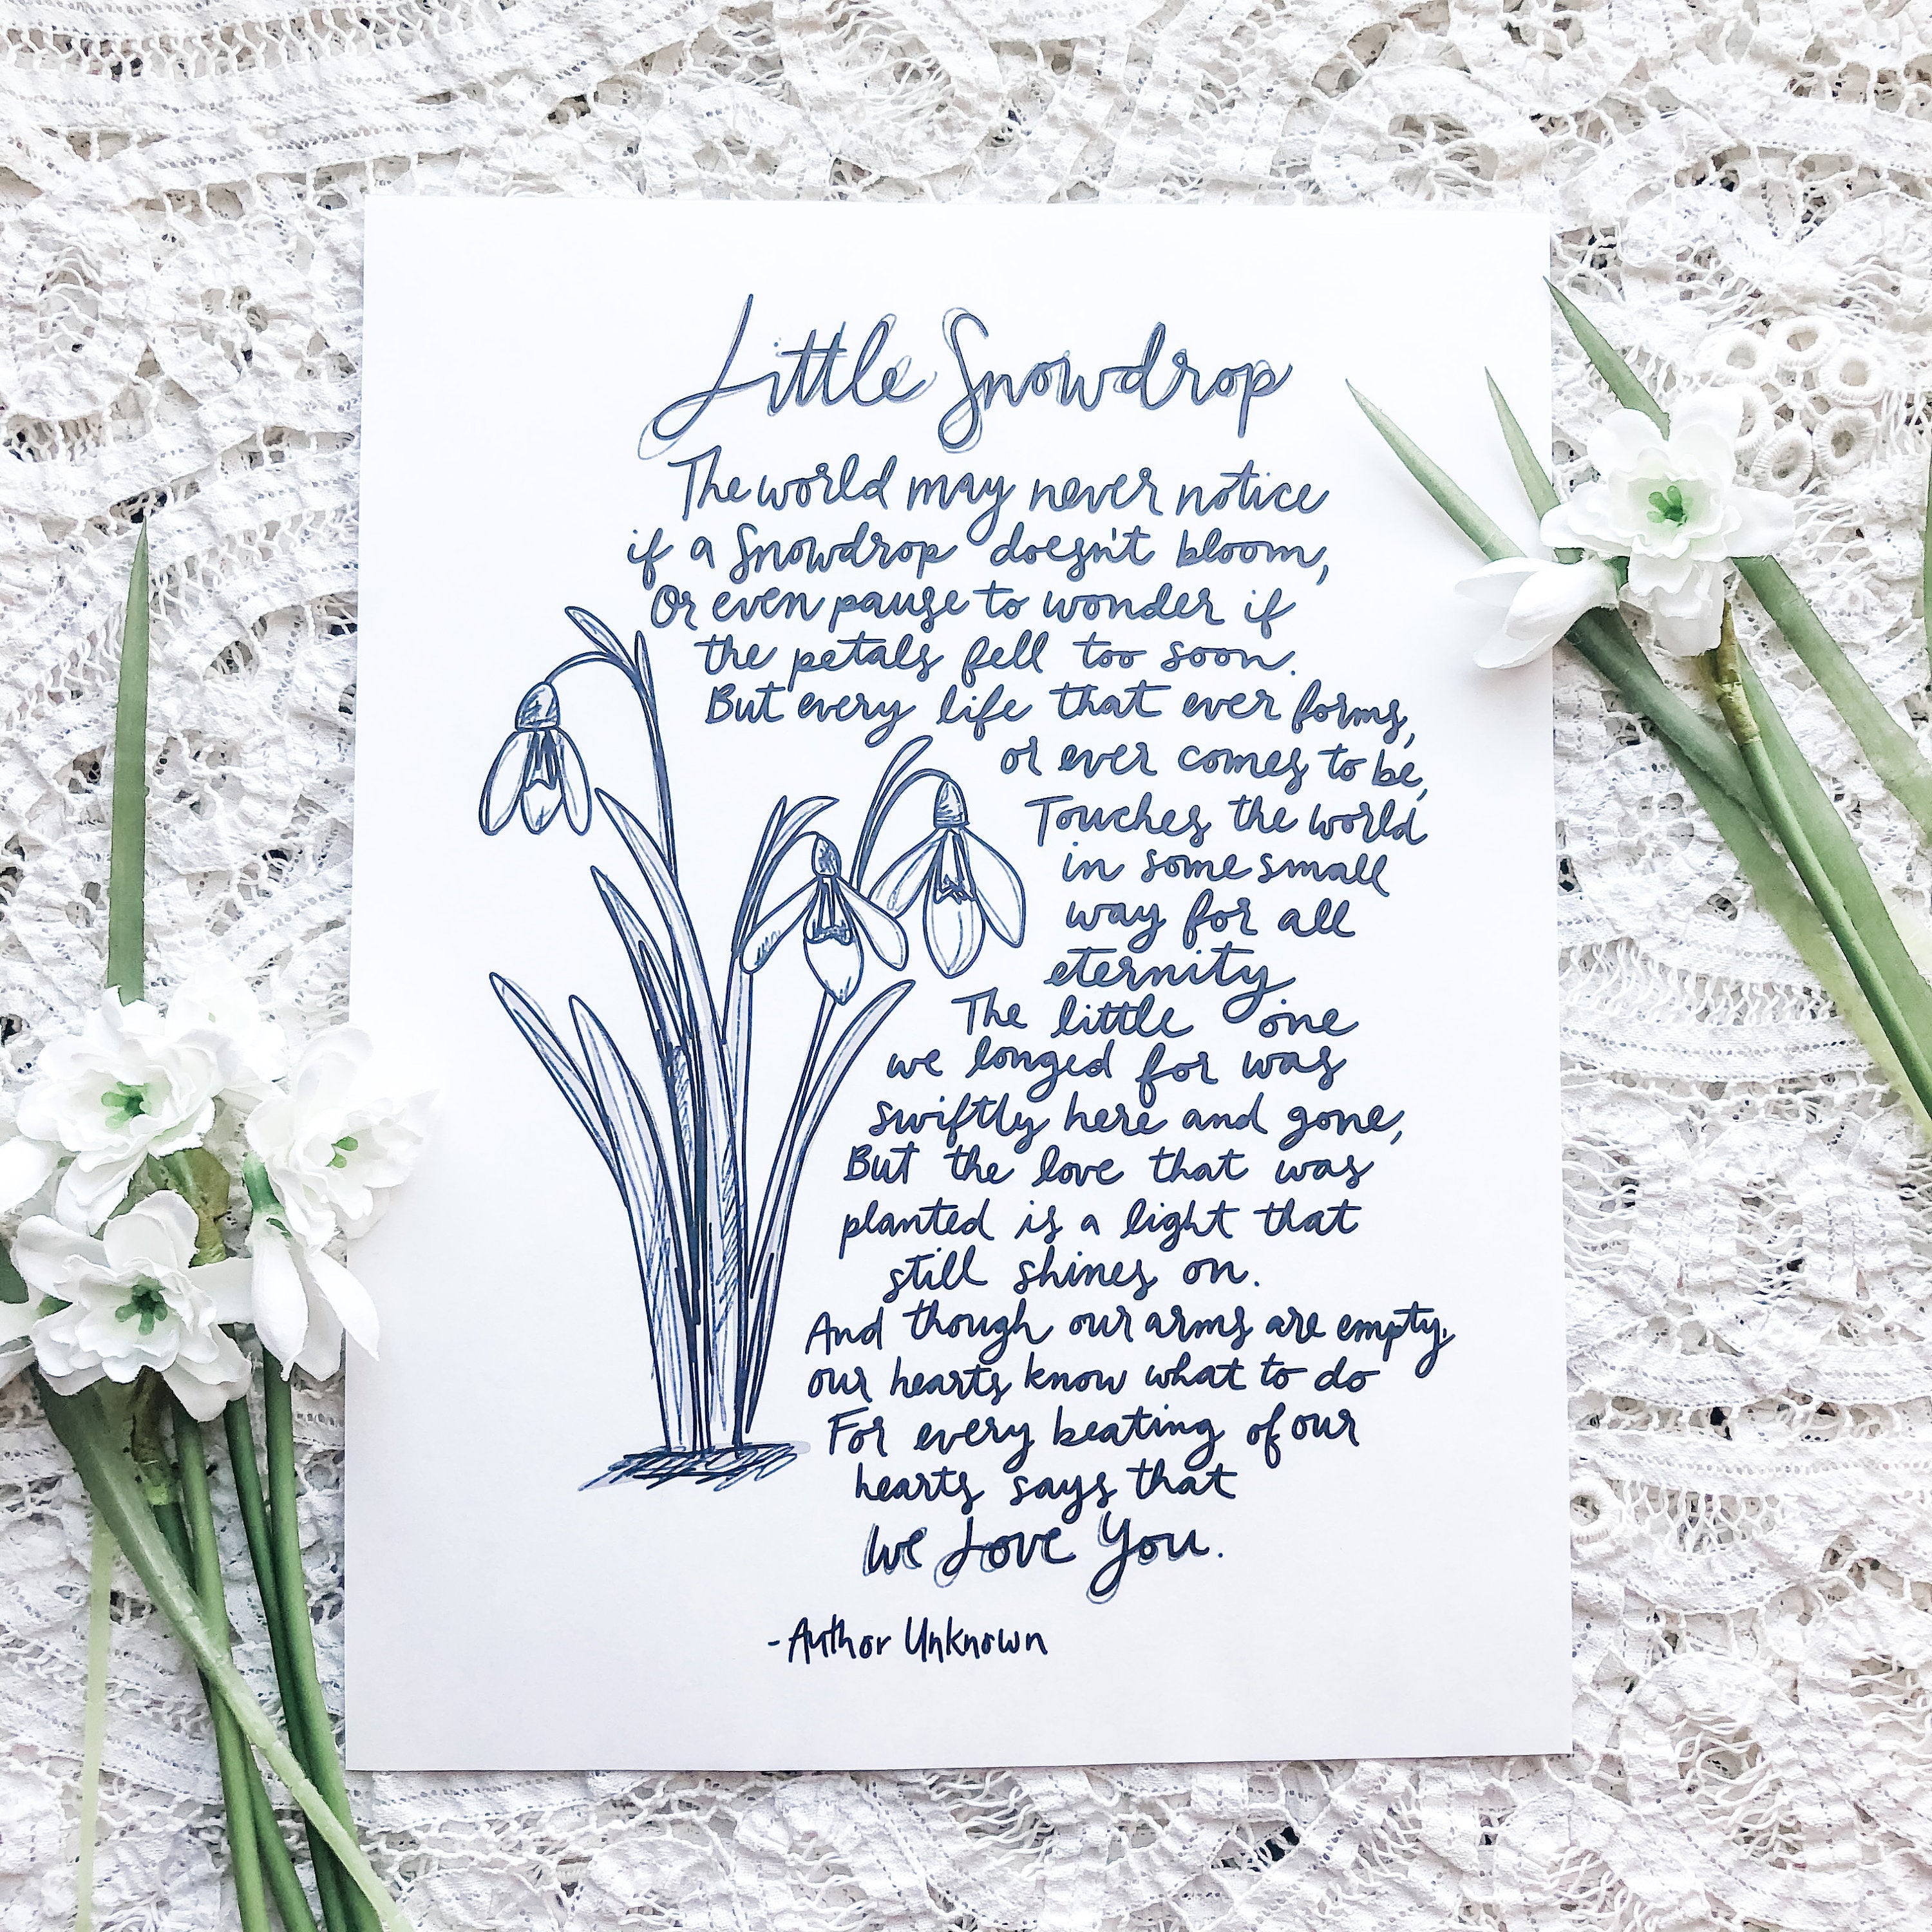 Little Snowdrop
The world may never notice
if a Snowdrop doesn't bloom,
Or even pause to wonder if
the petals fell too soon.
But every life that ever forms,
or ever comes to be,
Touches the world
in some small
way for all
eternity
The little one
we longed for was
swiftly here and gone,
But the love that was
planted is a light that
still shines on.
And though our arms are empty,
our hearts know what to do
For every beating of our
hearts says that
We Love You.
-Author Unknown